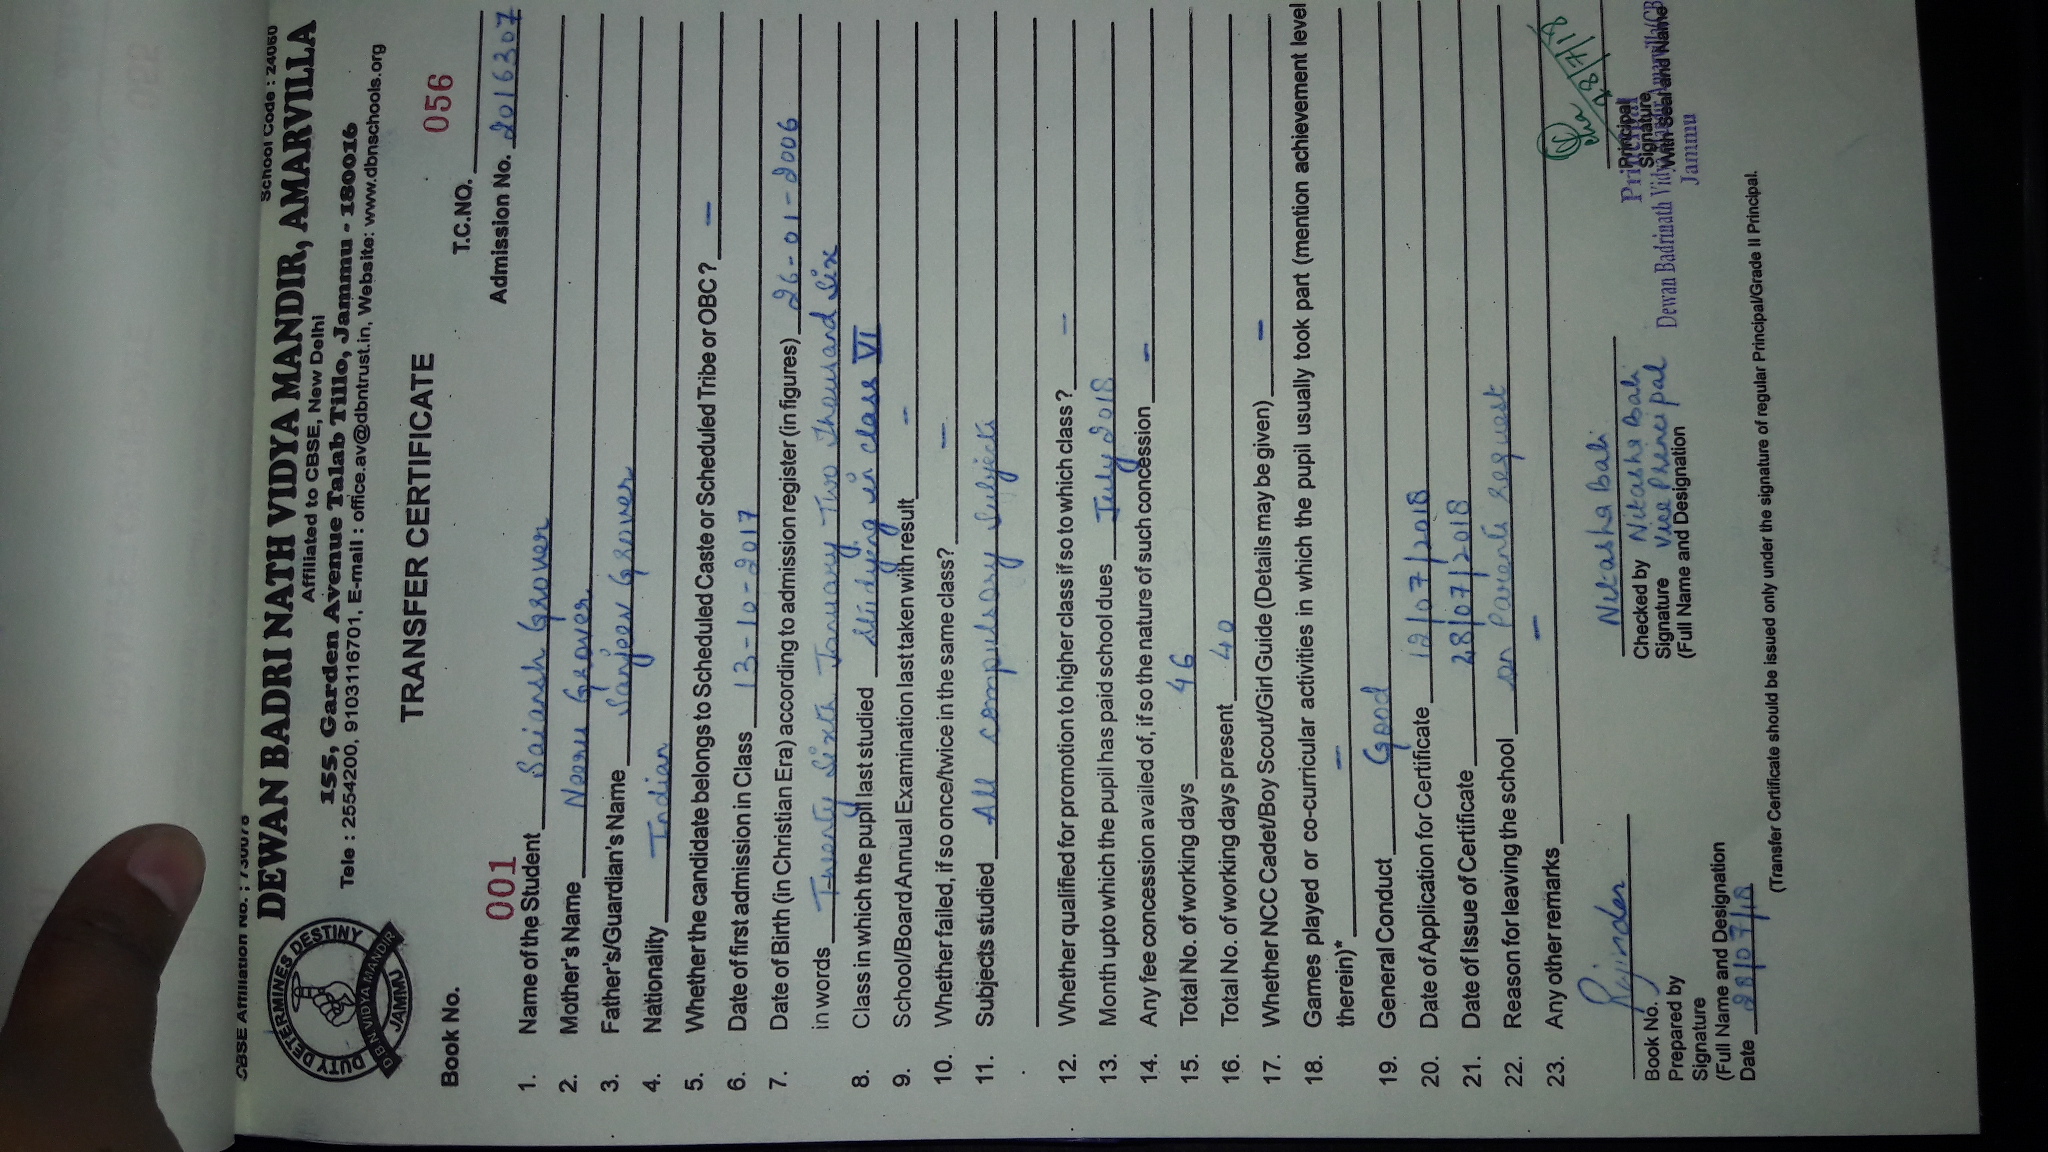 CBSE Affiliation No. : 730078 School Code : 24060
DEWAN BADRI NATH VIDYA MANDIR, AMARVILLA
Affiliated to CBSE, New Delhi
155, Garden Avenue Talab Tillo, Jammu - 180016
Tele : 2554200, 9103116701, E-mail : office.av@dbntrust.in, Website: www.dbnschools.org
DUTY DETERMINES DESTINY
D.B.N.VIDYA MANDIR
JAMMU
TRANSFER CERTIFICATE
Book No. 001 T.C.NO. 056
Admission No. 2016307
1. Name of the Student Saiansh Grover
2. Mother's Name Neeru Grover
3. Father's/Guardian's Name Sanjeev Grover
4. Nationality Indian
5. Whether the candidate belongs to Scheduled Caste or Scheduled Tribe or OBC? –
6. Date of first admission in Class 13-10-2017
7. Date of Birth (in Christian Era) according to admission register (in figures) 26-01-2006
in words Twenty Sixth January Two Thousand Six
8. Class in which the pupil last studied studying in class VI
9. School/Board Annual Examination last taken with result –
10. Whether failed, if so once/twice in the same class? –
11. Subjects studied All compulsory Subjects
12. Whether qualified for promotion to higher class if so to which class? –
13. Month upto which the pupil has paid school dues July 2018
14. Any fee concession availed of, if so the nature of such concession –
15. Total No. of working days 46
16. Total No. of working days present 40
17. Whether NCC Cadet/Boy Scout/Girl Guide (Details may be given) –
18. Games played or co-curricular activities in which the pupil usually took part (mention achievement level
therein)* –
19. General Conduct Good
20. Date of Application for Certificate 12/07/2018
21. Date of Issue of Certificate 28/07/2018
22. Reason for leaving the school on Parents request
23. Any other remarks –
Rajinder Nitasha Bali 28/7/18
Book No. Checked by Nitasha Bali Principal
Prepared by Signature Vice Principal Signature
Signature (Full Name and Designation) With Seal and Name
(Full Name and Designation)
Date 28/07/18
Principal
Dewan Badrinath Vidya
Jammu
(Transfer Certificate should be issued only under the signature of regular Principal/Grade II Principal.